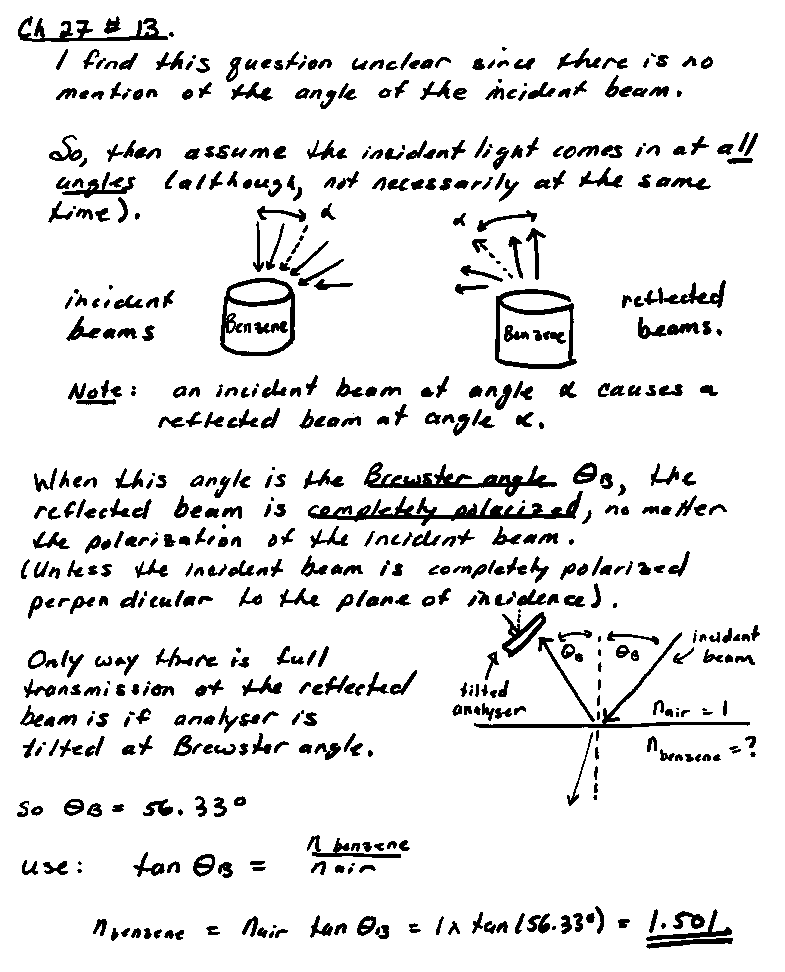 Ch 27 # 13.
I find this question unclear since there is no
mention of the angle of the incident beam.
So, then assume the incident light comes in at all
angles (although, not necessarily at the same
time).
α
α
incident
beams
Benzene
Benzene
reflected
beams.
Note: an incident beam at angle α causes a
reflected beam at angle α.
When this angle is the Brewster angle θB, the
reflected beam is completely polarized, no matter
the polarization of the incident beam.
(Unless the incident beam is completely polarized
perpendicular to the plane of incidence).
Only way there is full
transmission of the reflected
beam is if analyser is
tilted at Brewster angle.
tilted
analyser
θB
θB
incident
beam
nair = 1
nbenzene = ?
So θB = 56.33°
use: tan θB = n benzene / n air
nbenzene = nair tan θB = 1 x tan (56.33°) = 1.501